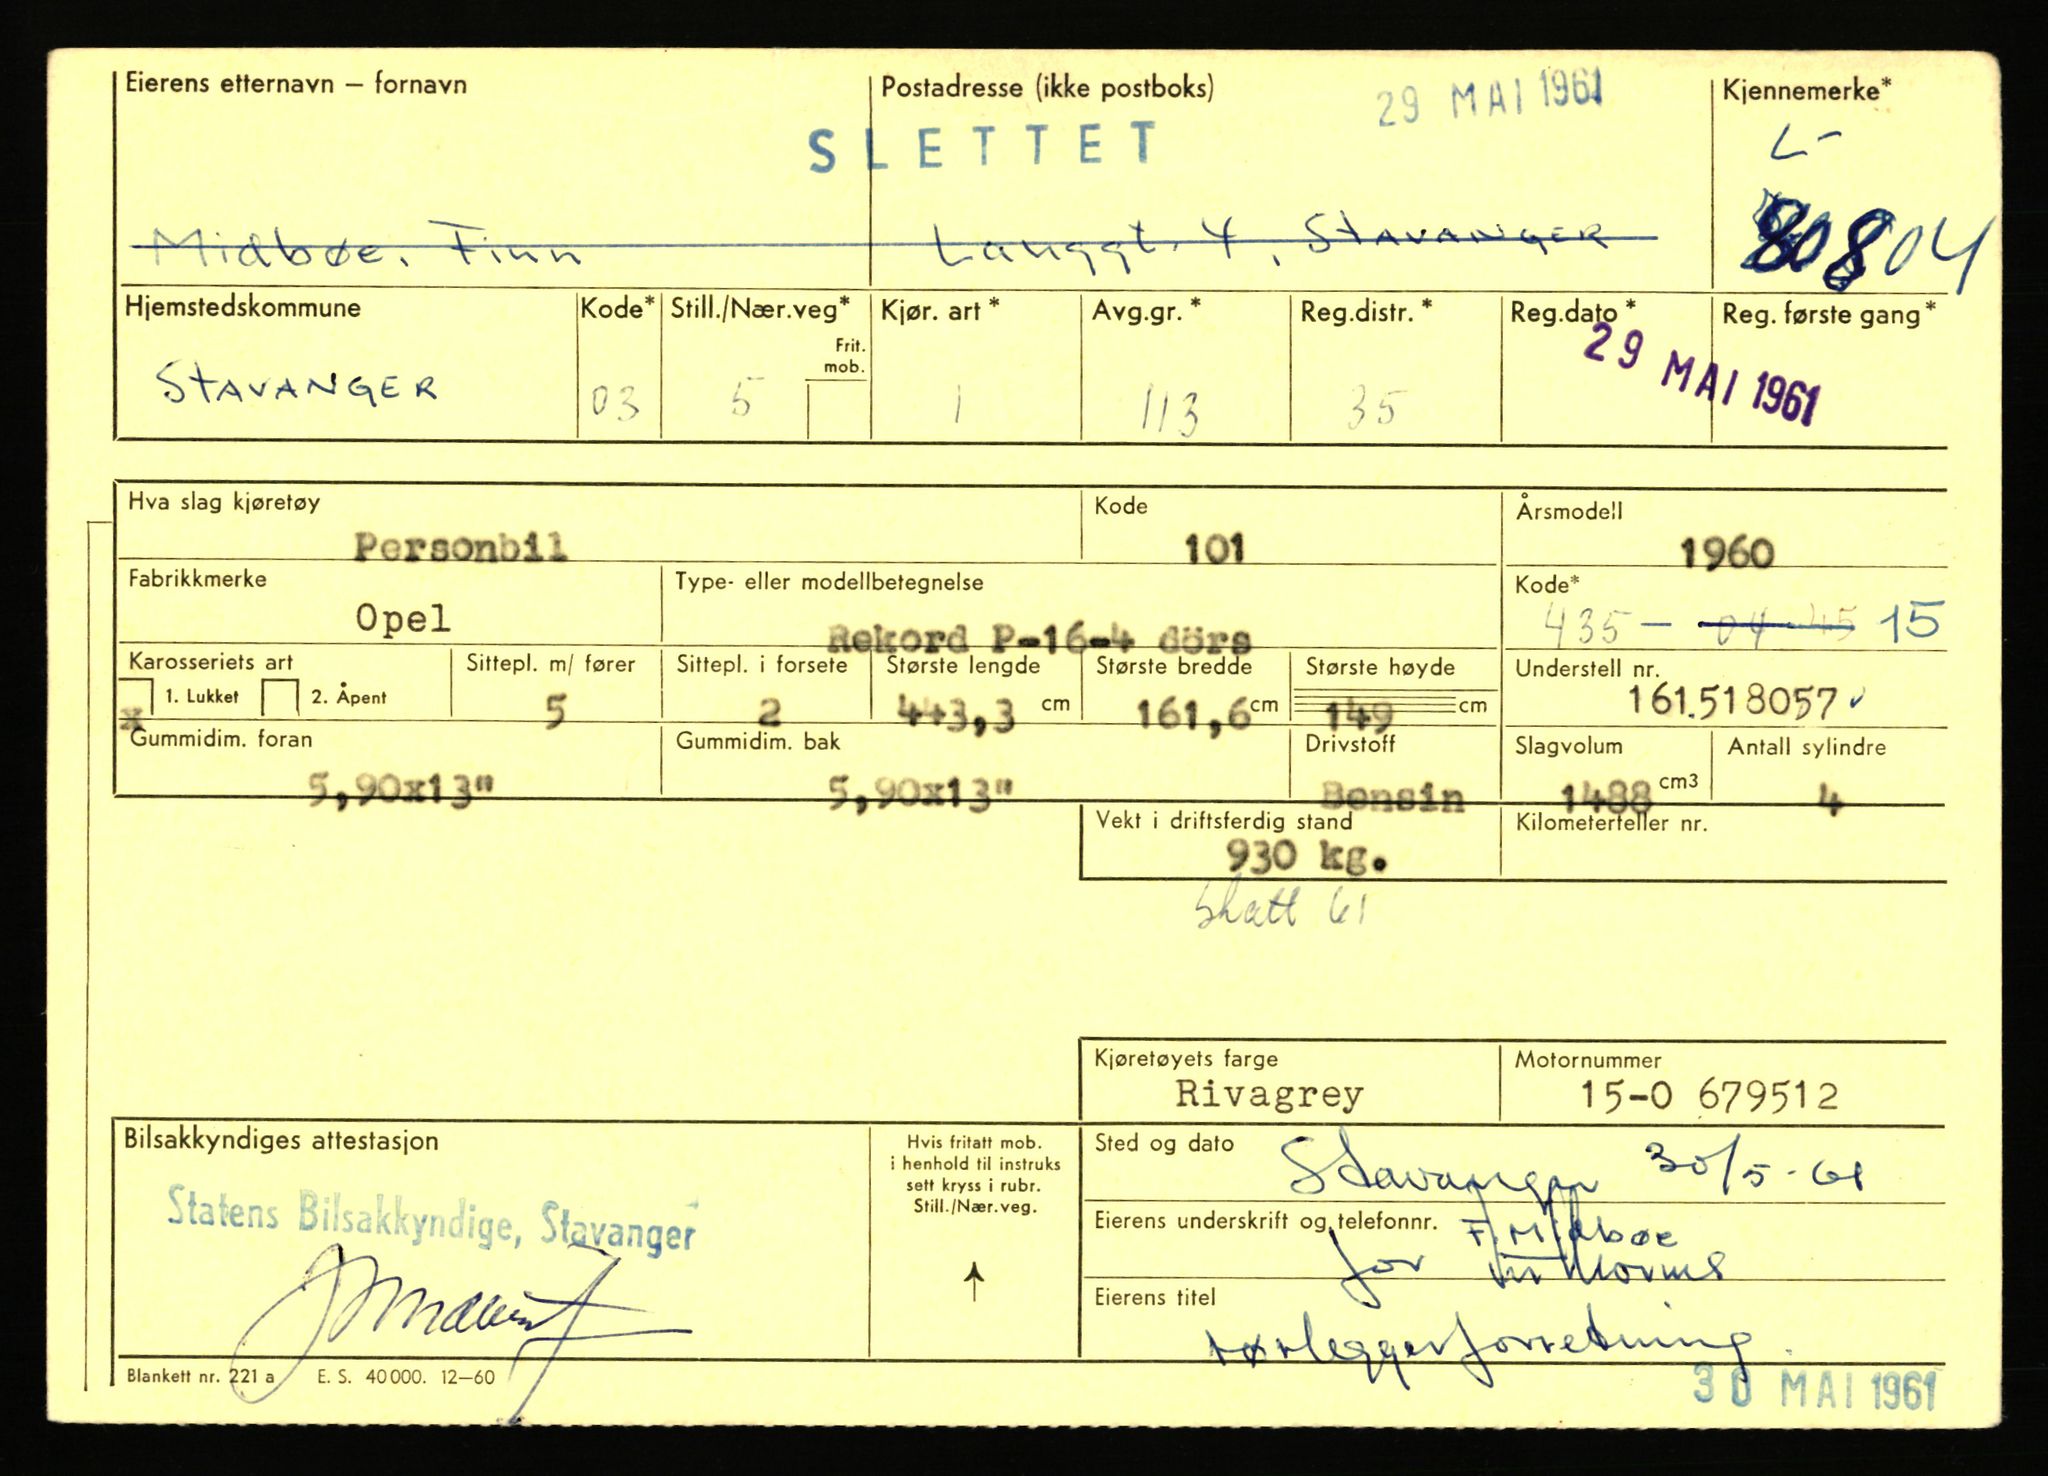 Eierens etternavn – fornavn
Postadresse (ikke postboks)
29 MAI 1961
Kjennemerke*
SLETTET
L-
80804
Midbøe, Finn
Langgt. 4, STAVANGER
Hjemstedskommune
Kode*
Still./Nær.veg*
Frit. mob.
Kjør. art *
Avg.gr. *
Reg.distr. *
Reg.dato *
Reg. første gang *
STAVANGER
03
5
1
113
35
29 MAI 1961
Hva slag kjøretøy
Kode
Årsmodell
Personbil
101
1960
Fabrikkmerke
Type- eller modellbetegnelse
Kode*
Opel
Rekord P-16-4 dörs
435 – 04-45 15
Karosseriets art
Sittepl. m/ fører
Sittepl. i forsete
Største lengde
Største bredde
Største høyde
Understell nr.
x
1. Lukket
2. Åpent
5
2
443,3 cm
161,6 cm
149 cm
161.518057
Gummidim. foran
Gummidim. bak
Drivstoff
Slagvolum
Antall sylindre
5,90x13"
5,90x13"
Bensin
1488 cm3
4
Vekt i driftsferdig stand
Kilometerteller nr.
930 kg.
Skatt 61
Kjøretøyets farge
Motornummer
Rivagrey
15-0 679512
Bilsakkyndiges attestasjon
Hvis fritatt mob.
i henhold til instruks
sett kryss i rubr.
Still./Nær.veg.
Sted og dato
Stavanger 30/5-61
Statens Bilsakkyndige, Stavanger
Eierens underskrift og telefonnr.
F. Midbøe
for
Eierens titel
rørleggerforretning
Blankett nr. 221 a
E. S. 40 000. 12–60
30 MAI 1961